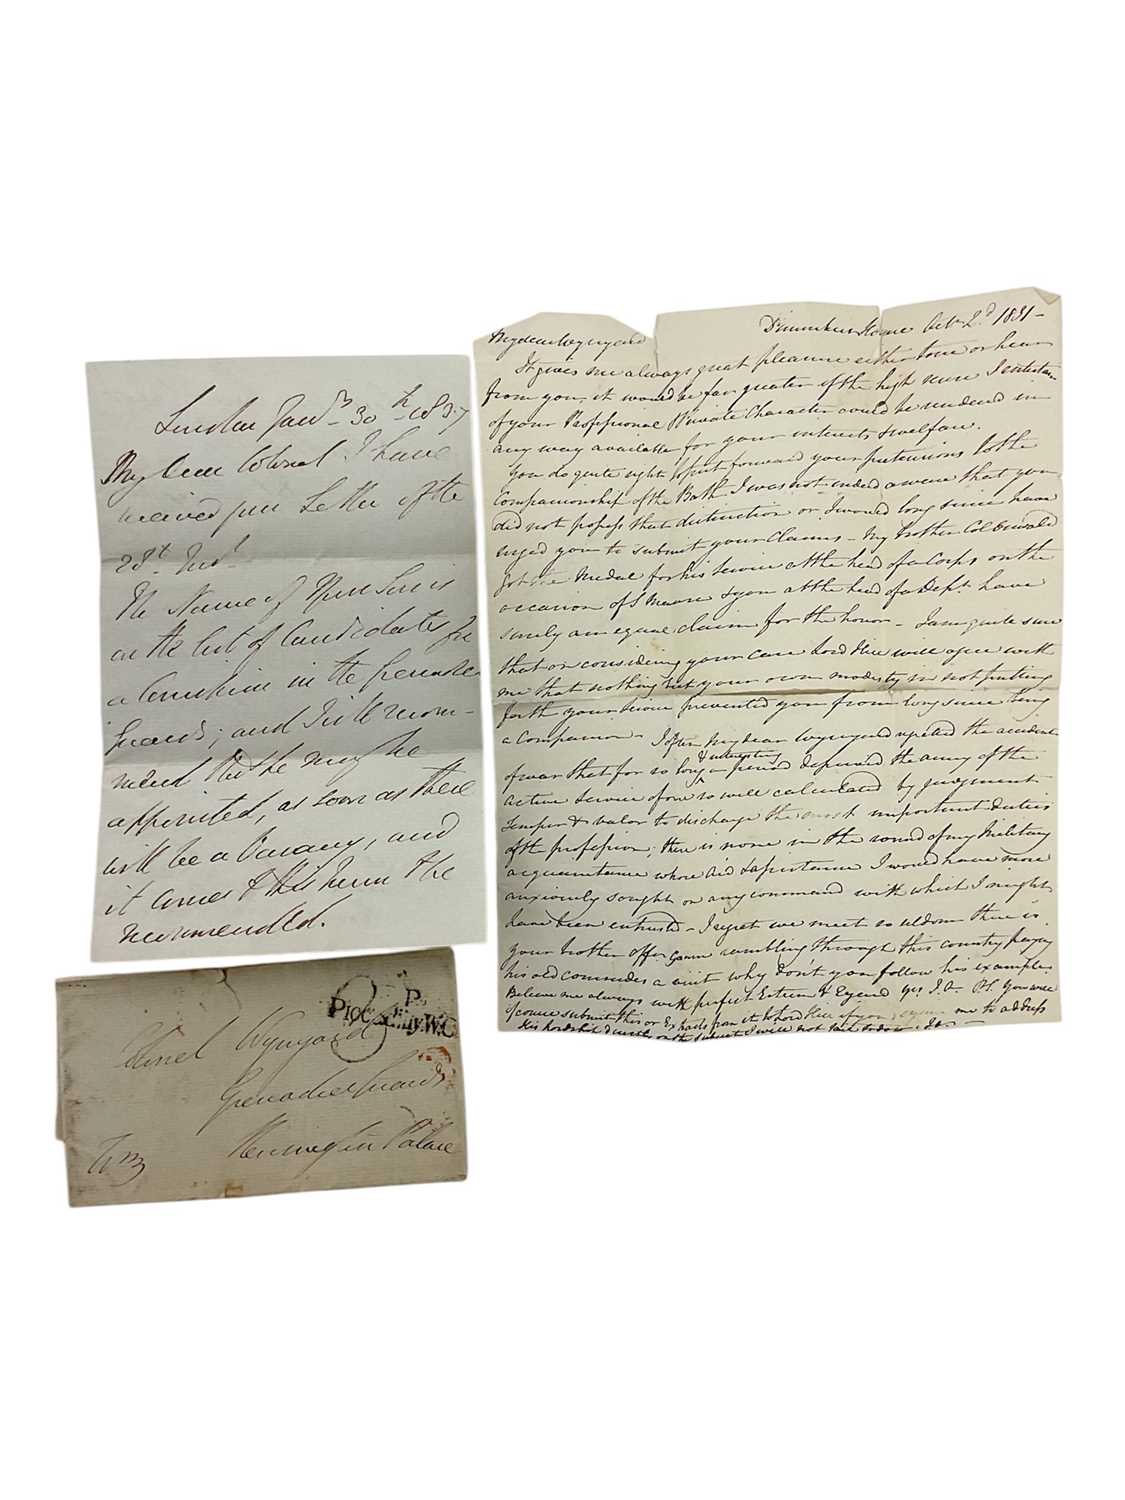 London Jan.y 30th 1837
My Dear Colonel I have
received your Letter of the
28th Inst.
The Name of your Son is
on the list of Candidates for
a Commission in the Grenadier
Guards; and I will recom-
mend that he may be
appointed, as soon as there
will be a Vacancy, and
it comes to his turn to be
recommended.
Colonel Wynyard
Grenadier Guards
Kensington Palace
P.
Piccadilly W.O
My dear Wynyard
House Octr 2d 1831 -
It gives me always great pleasure either to see or hear
from you, it would be far greater if the high sense I entertain
of your Professional & Private Character could be rendered in
any way available for your interests & welfare.
You do quite right to put forward your pretensions to the
Companionship of the Bath. I was not indeed aware that you
did not possess that distinction or I would long since have
urged you to submit your Claims - My brother Col Oswald
got the Medal for his service at the head of a Corps on the
occasion of S Maura & you at the head of a Dept. have
surely an equal claim for the honor - I am quite sure
that on considering your case Lord Hill will agree with
me that nothing but your own modesty in not putting
forth your Service prevented you from long since being
a Companion - I often My dear Wynyard regretted the accident
of war that for so long & interesting a period deprived the army of the
active Service of one so well calculated by judgment
temper & valor to discharge the most important duties
of the profession; there is none in the round of my Military
acquaintance whose aid & assistance I would have more
anxiously sought on any command with which I might
have been entrusted - I regret we meet so seldom there is
your brother offer rambling through this country paying
his old comrades a visit why don't you follow his example
Believe me always with perfect Esteem & Regard Yrs J.O. PS. You will
of course submit this or Extracts from it to Lord Hill if you me to address
His Lordship directly on the subject I will not fail to do so. J.O. -